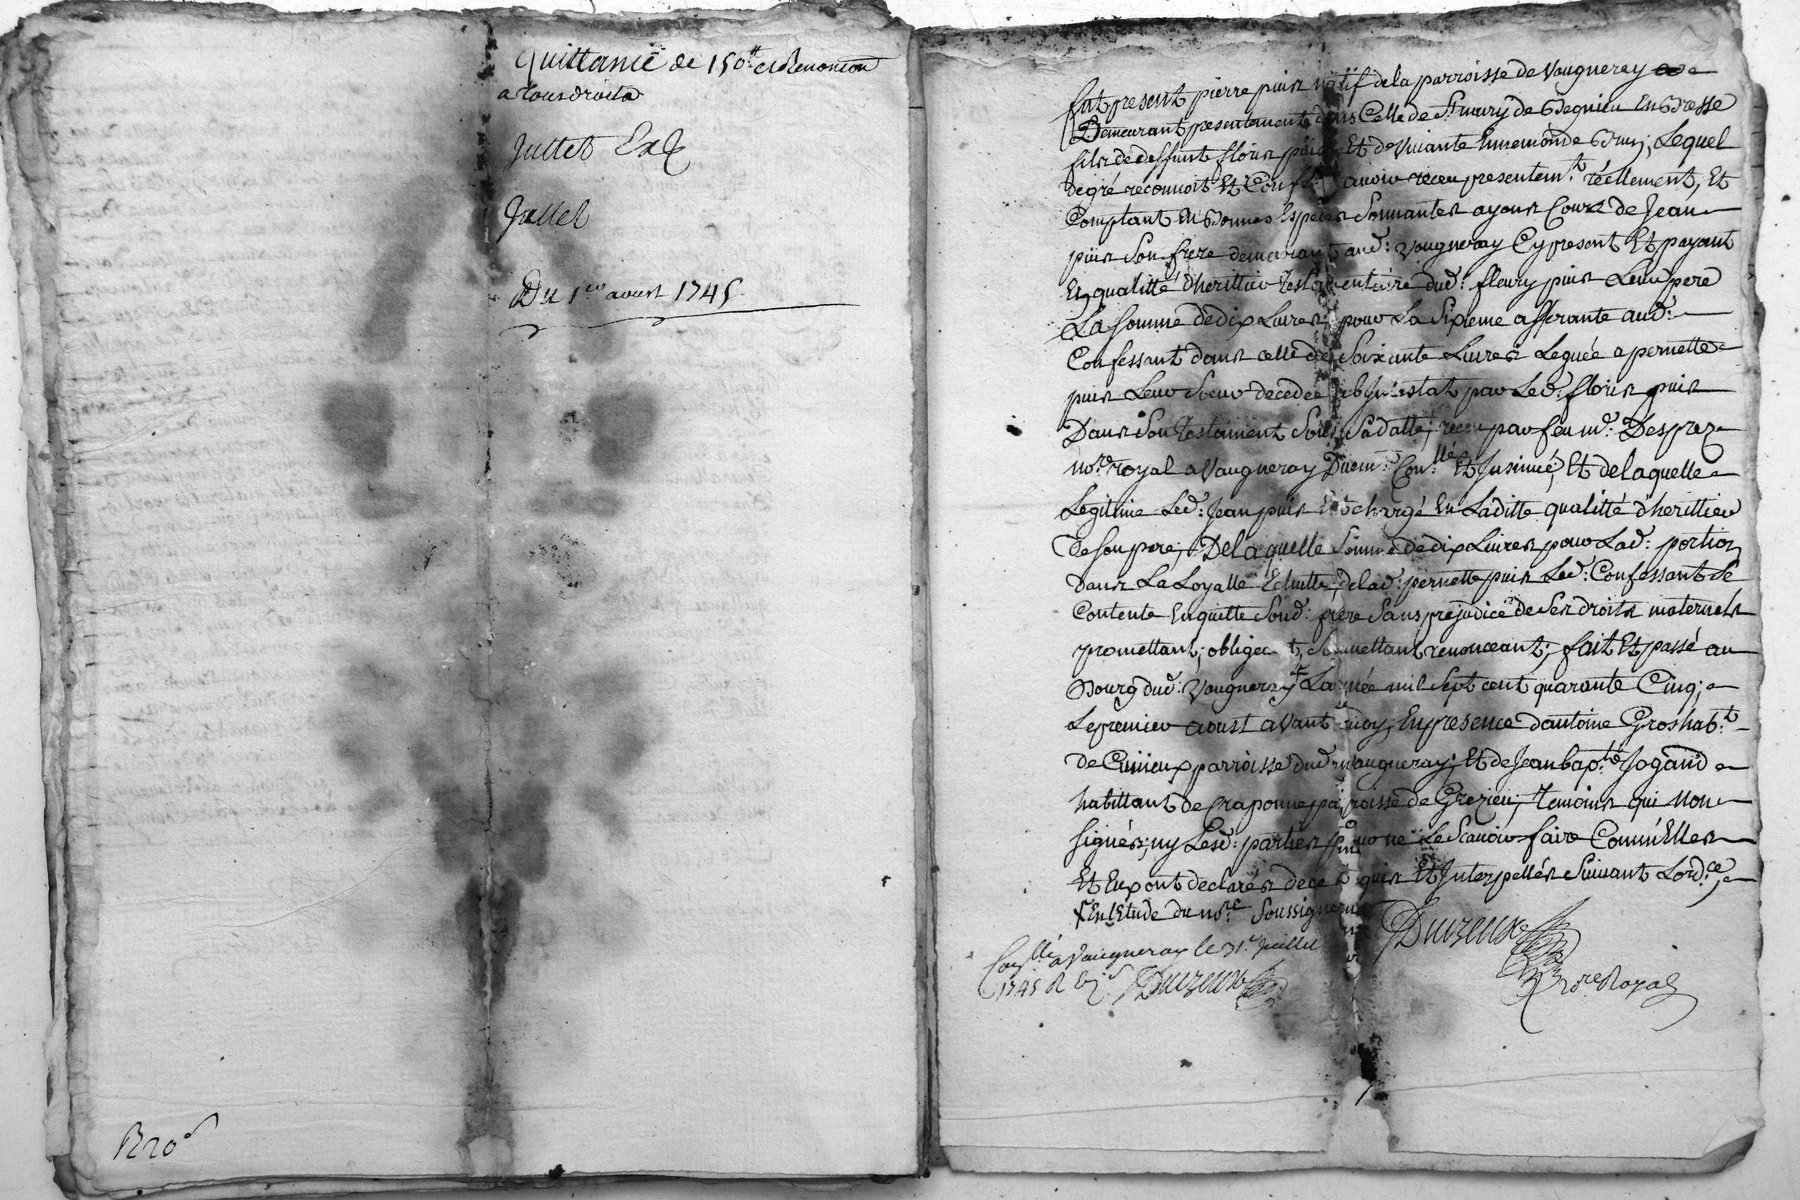 Quittance de 150ᵗᵗ et Renonciaõn
a tous droits
Jullet
Jullet
Du 1ᵉʳ aoust 1745
R 20ˢ
fut present pierre puis natif de la parroisse de Vaugneray
Demeurant presentement dans Celle de Sᵗ maury de En Bresse
fils de deffunt floris puis Et de Vivante Ennemonde Brun; Lequel
de gré reconnoit Et Confesse avoir receu presentemᵗ. réellement, Et
Comptant En Bonnes Especes Sonnantes ayans Cours de Jean
puis Son frere demeurant aud: Vaugneray Cy present Et payant
En qualitté d'herittier testamentaire dud: fleury puis Leur pere
La Somme de dix Livres, pour La Sixieme afferante aud:
Confessant dans celle de Soixante Livres Leguée a pernette
puis Leur Soeur decedée ab Intestat par Led: floris puis
Dans Son testament Sous Sa datte, receu par feu mᵉ. Desprez
noʳᵉ royal a Vaugneray Duem.ᵗ Con.ˡˡᵉ Et Insinué, Et de laquelle
Legitime Led: Jean puis Est chargé En Laditte qualitté d'herittier
de Son pere; De laquelle Somme de dix Livres pour Lad: portion
dans La Loyalle Echutte de lad: pernette puis Led: Confessant Se
Contente En quitte Sond: frere Sans prejudice de Ses droits maternels
promettant, obligeant, Soumettant renonceant; fait Et passé au
Bourg dud: Vaugneray L'année mil Sept cent quarante Cinq;
Le premier aoust avant midy, En presence d'antoine Gros hab.ᵗ
de parroisse dud: vaugneray; Et de Jean bap.ᵗᵉ Jogand
habittant de Craponne parroisse de Grezieu; Temoins qui n'on
Signés, ny Lesd: parties pour ne Le Scavoir faire Comm'Elles
Et Eux ont declarés de ce requis Et Interpellés Suivant Lord.ᶜᵉ;
En L'Etude du noʳᵉ Soussigné
Con.ˡˡᵉ a Vaugneray le 31ᵉ Juillet
1745 R Duizeux
Duizeux
noʳᵉ Royal